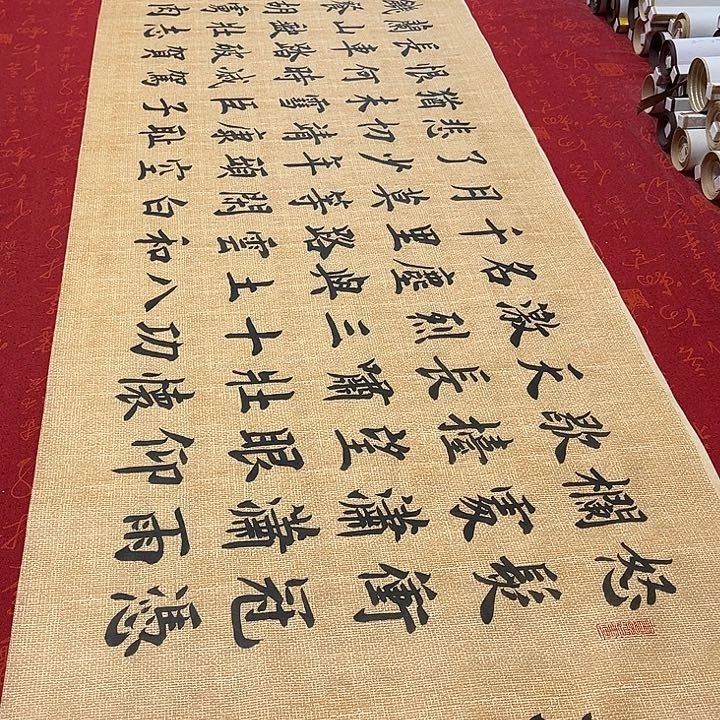 怒髮衝冠憑
欄處瀟瀟雨
歇擡望眼仰
天長嘯壯懷
激烈三十功
名塵與土八
千里路雲和
月莫等閒白
了少年頭空
悲切靖康恥
猶未雪臣子
恨何時滅駕
長車踏破賀
蘭山缺壯志
胡虜肉